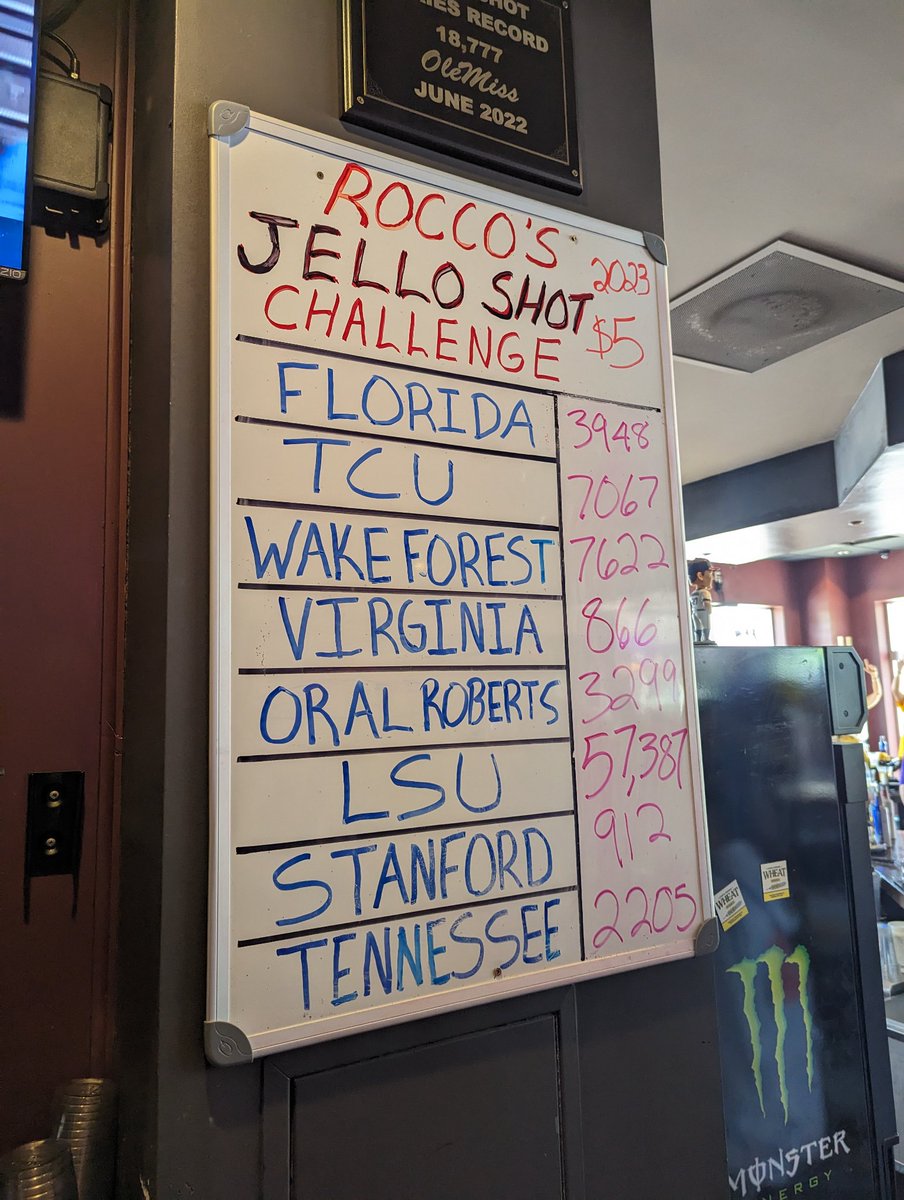 SHOT
RECORD
18,777
OleMiss
JUNE 2022
ROCCO'S
JELLO SHOT 2023
CHALLENGE $5
FLORIDA 3948
TCU 7067
WAKE FOREST 7622
VIRGINIA 866
ORAL ROBERTS 3299
LSU 57,387
STANFORD 912
TENNESSEE 2205
WHEAT
WHEAT
MONSTER
ENERGY
ZIO